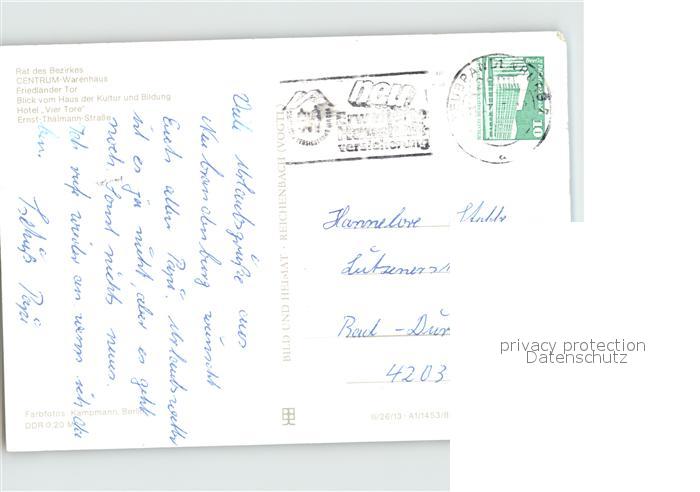 Rat des Bezirkes
CENTRUM-Warenhaus
Friedländer Tor
Blick vom Haus der Kultur und Bildung
Hotel „Vier Tore"
Ernst-Thälmann-Straße
Viele Urlaubsgrüße aus
Neubrandenburg wünscht
Euch allen Papi. Urlaubswetter
ist es ja nicht, aber es geht
noch. Sonst nichts neues.
Ich ruf wieder an wenn ich da
bin.
Papi
Farbfotos: Kampmann, Berlin
DDR 0,20 M
BILD UND HEIMAT · REICHENBACH (VOGTL)
III/26/13 · A1/1453/8
neu
versicherung
10
Hannelore
Lützenerst
Bad-Dür
4203
privacy protection
Datenschutz